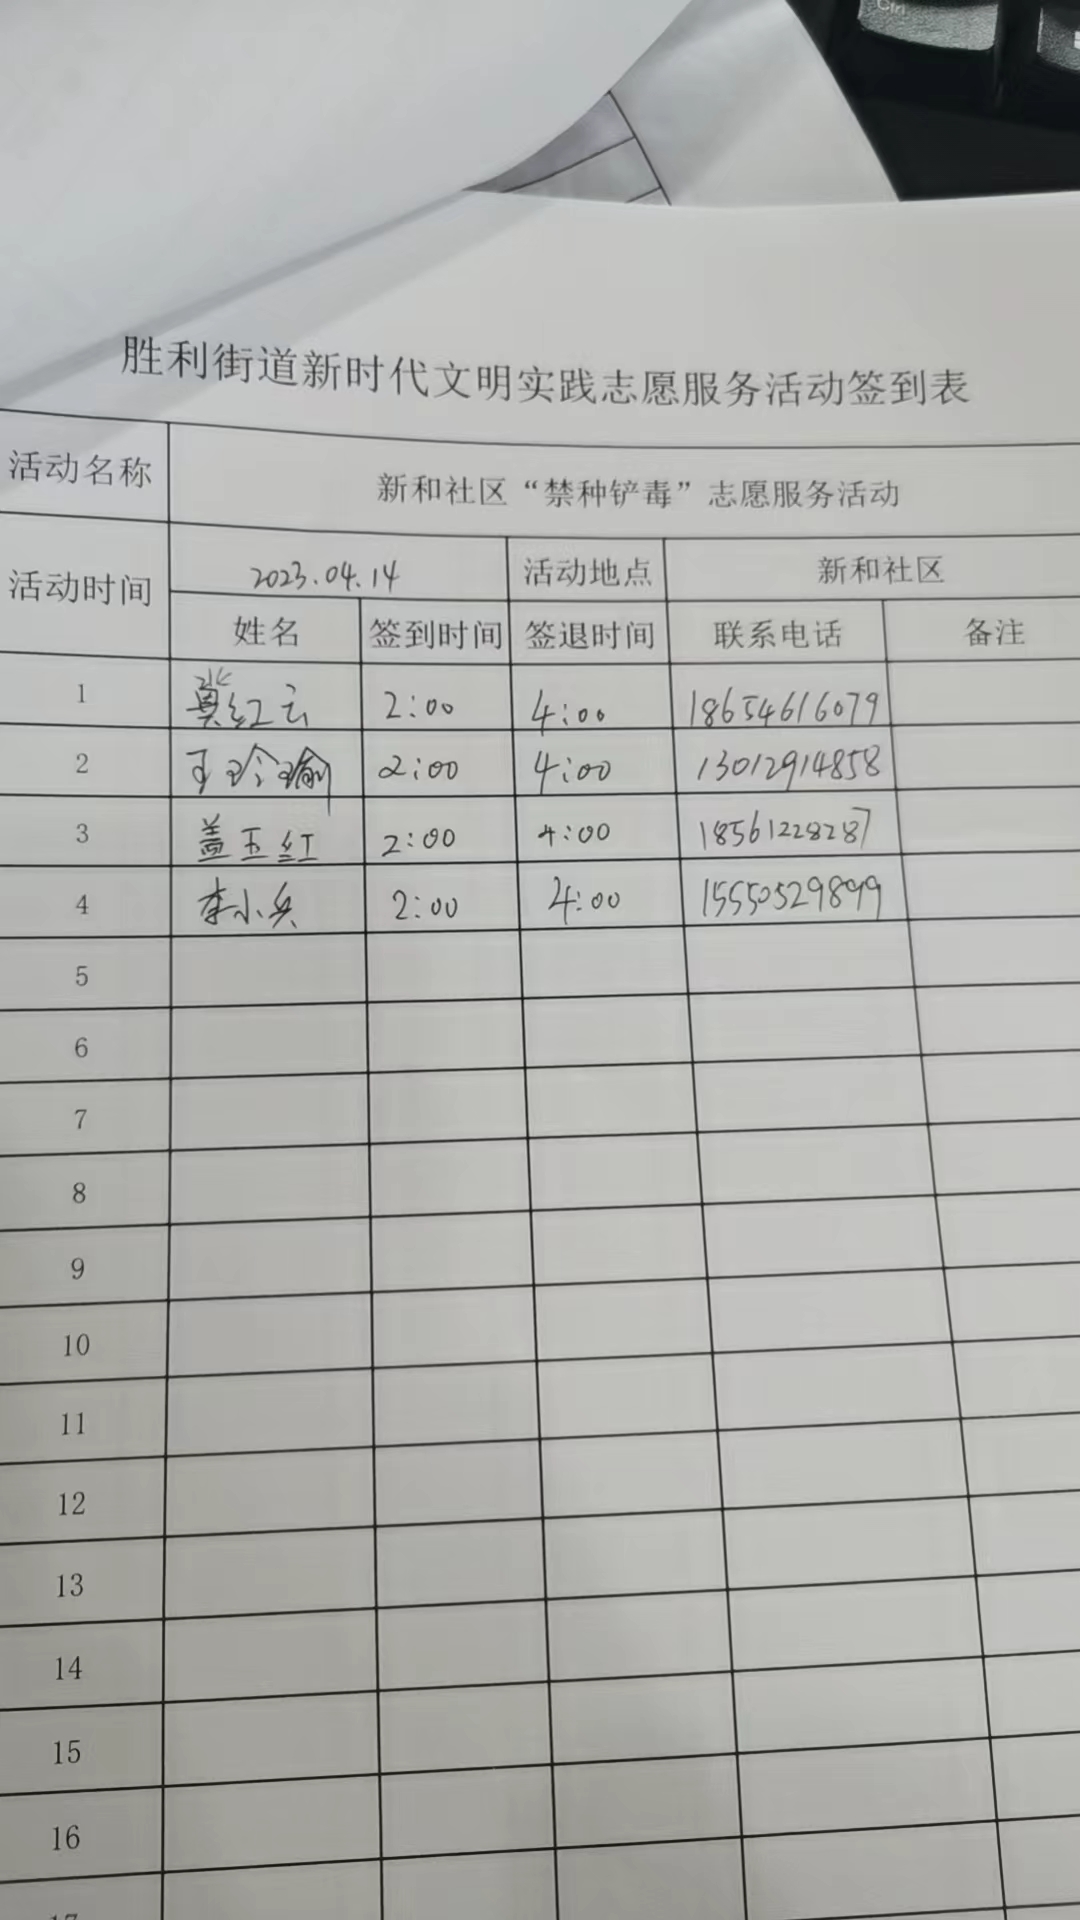 Ctrl
胜利街道新时代文明实践志愿服务活动签到表
活动名称 新和社区“禁种铲毒”志愿服务活动
活动时间 2023.04.14 活动地点 新和社区
姓名 签到时间 签退时间 联系电话 备注
1 冀红云 2:00 4:00 18654616079
2 王玲瑜 2:00 4:00 13012914858
3 盖玉红 2:00 4:00 18561228287
4 李小兵 2:00 4:00 15550529899
5
6
7
8
9
10
11
12
13
14
15
16
17